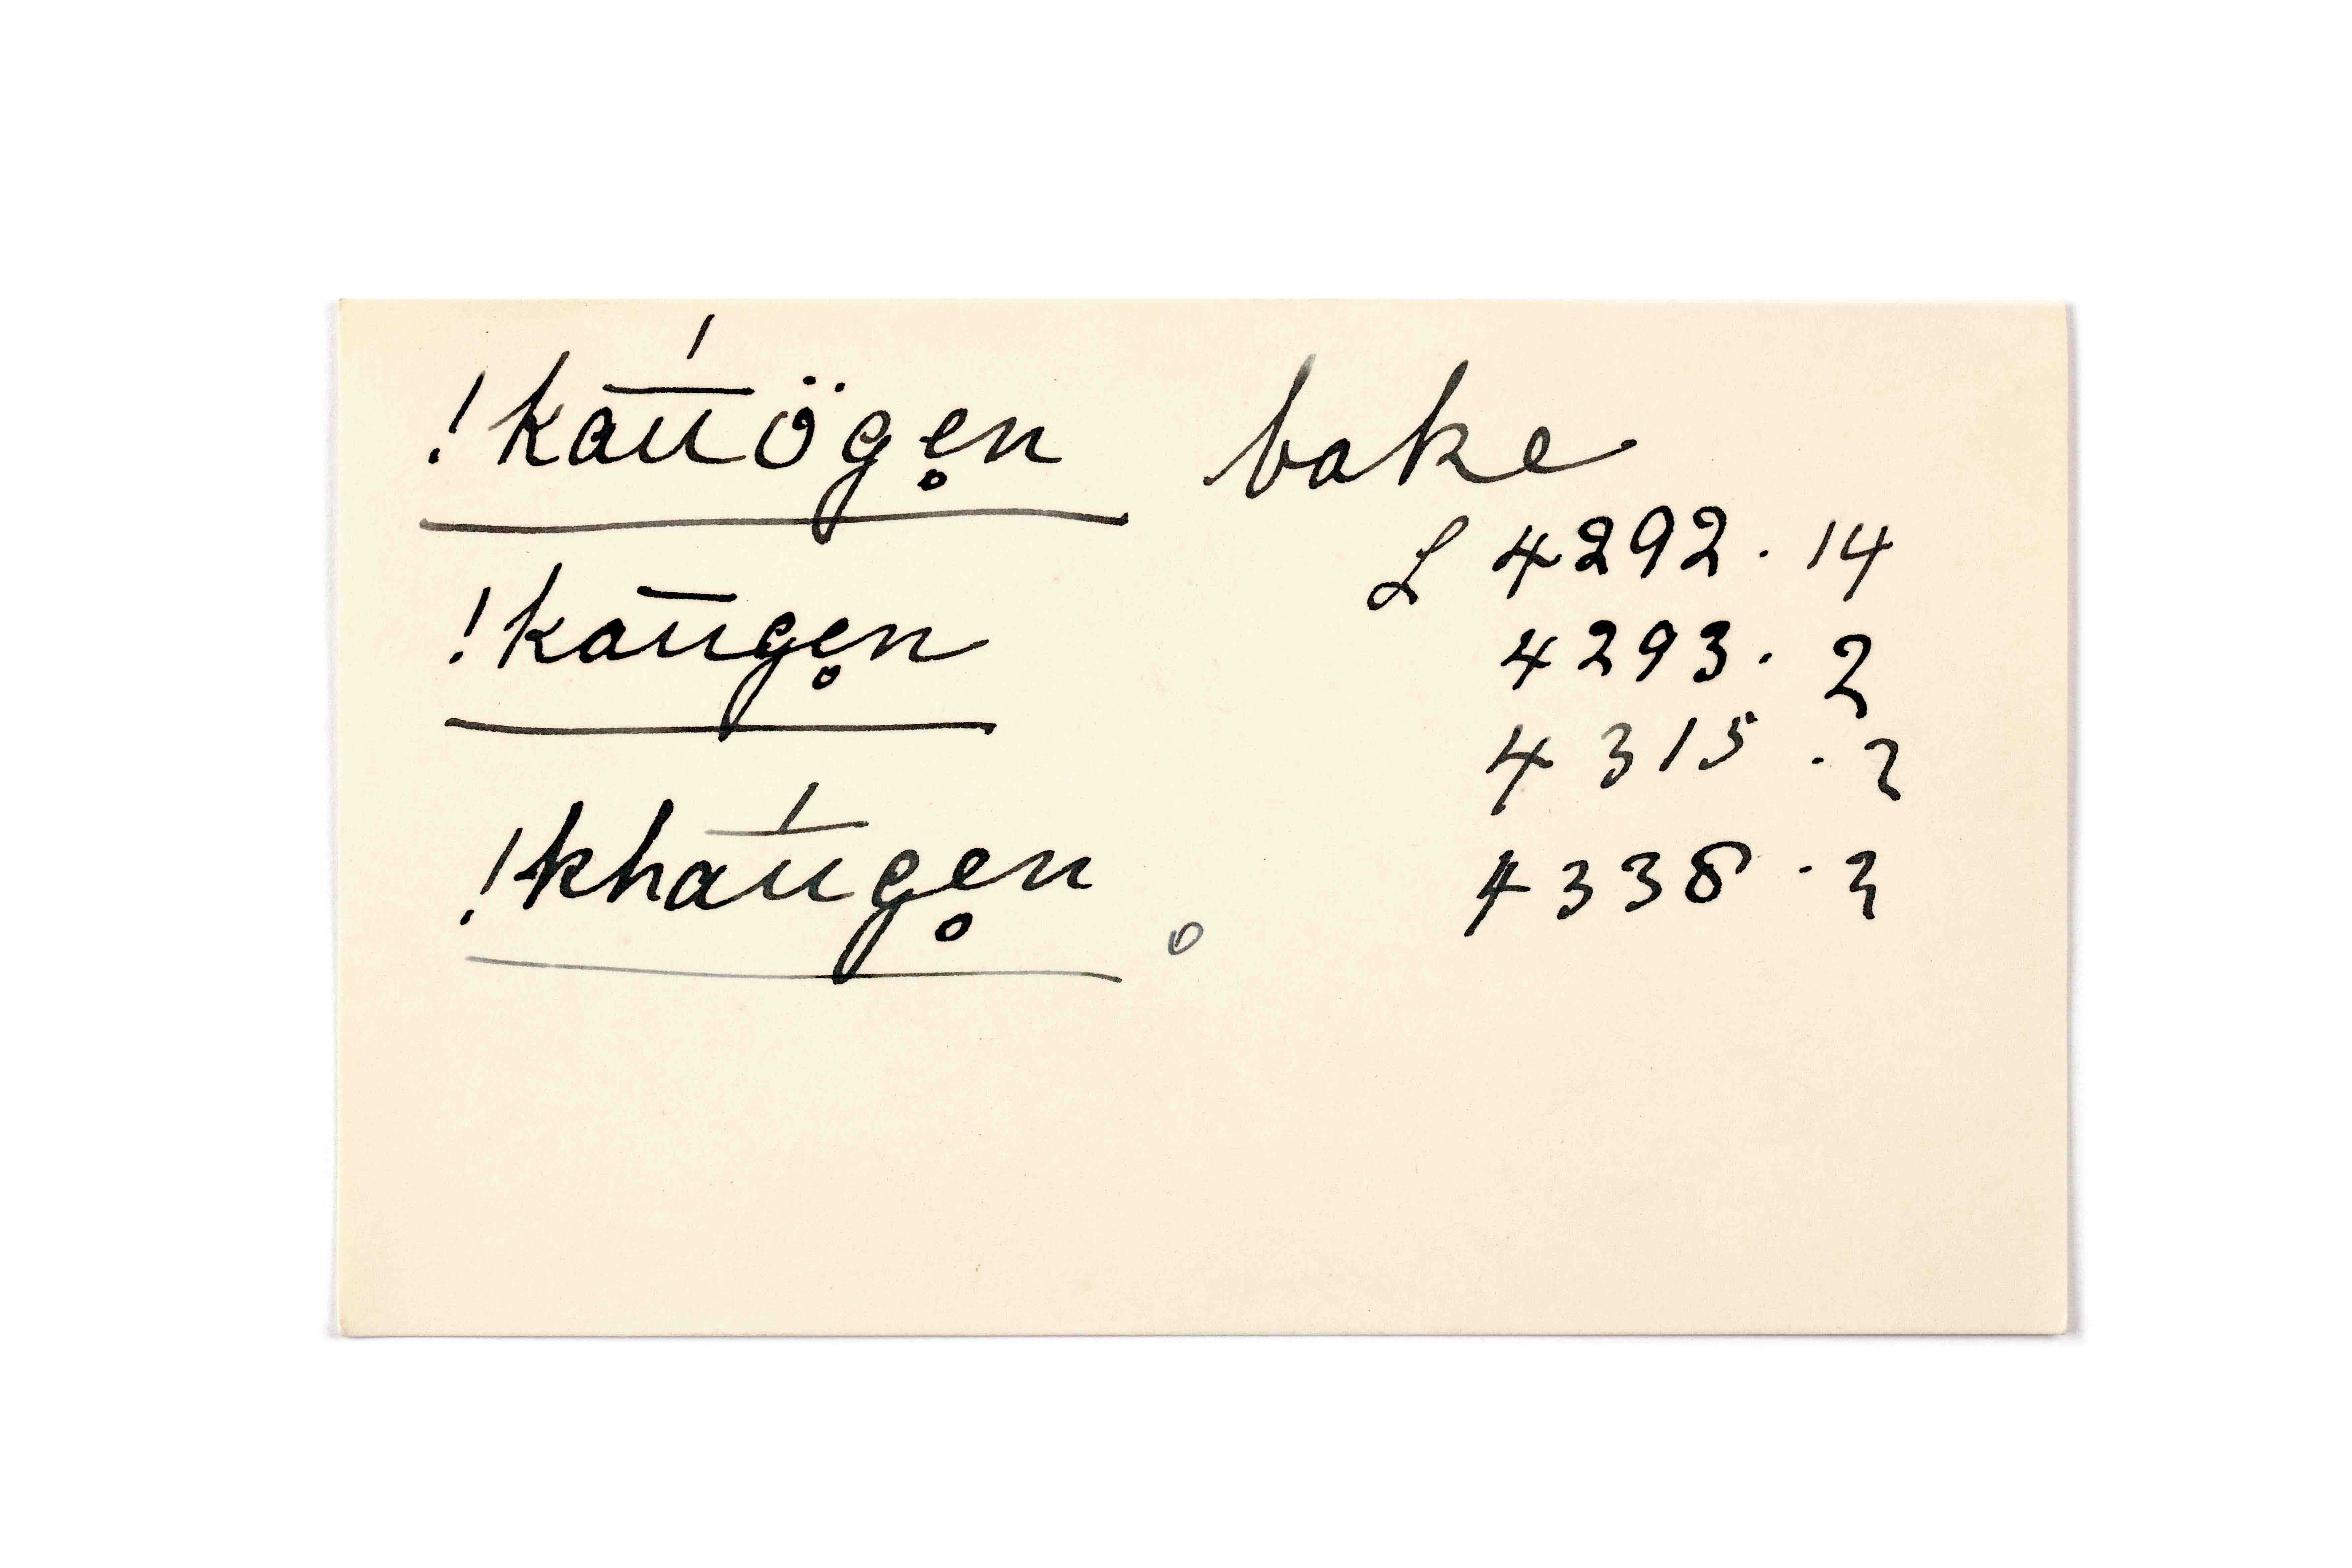 !ka͞úöge̥n bake
L 4292 . 14
!ka͞uge̥n 4293 . 2
4315 . 2
!kha͞úge̥n . 4338 . 3